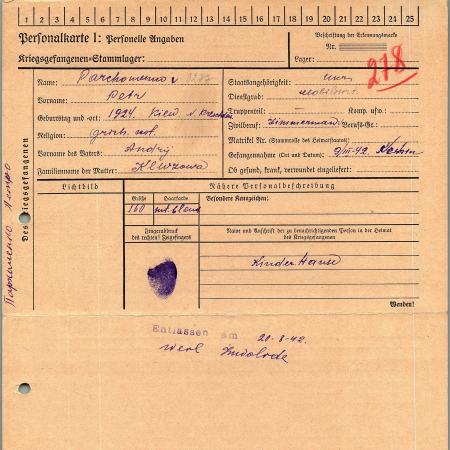 1 2 3 4 5 6 7 8 9 10 11 12 13 14 15 16 17 18 19 20 21 22 23 24 25
Personalkarte I: Personelle Angaben
Kriegsgefangenen-Stammlager:
Beschriftung der Erkennungsmarke
Nr.
Lager:
278
Des Kriegsgefangenen
Пархаменко Петро
Name: Parchomenko
Vorname: Petr
Geburtstag und -ort: 1924. Kiew
Religion:
Vorname des Vaters: Andrij
Familienname der Mutter:
Staatsangehörigkeit:
Dienstgrad:
Truppenteil: Komp. usw.:
Zivilberuf: Zimmermann Berufs-Gr.:
Matrikel Nr. (Stammrolle des Heimatstaates):
Gefangennahme (Ort und Datum): 9/III-42.
Ob gesund, krank, verwundet eingeliefert:
Lichtbild
Nähere Personalbeschreibung
Größe Haarfarbe Besondere Kennzeichen:
160 blond
Fingerabdruck
des rechten! Zeigefingers
Name und Anschrift der zu benachrichtigenden Person in der Heimat
des Kriegsgefangenen
Kinder Hause
Wenden!
Entlassen am 20-8-42.